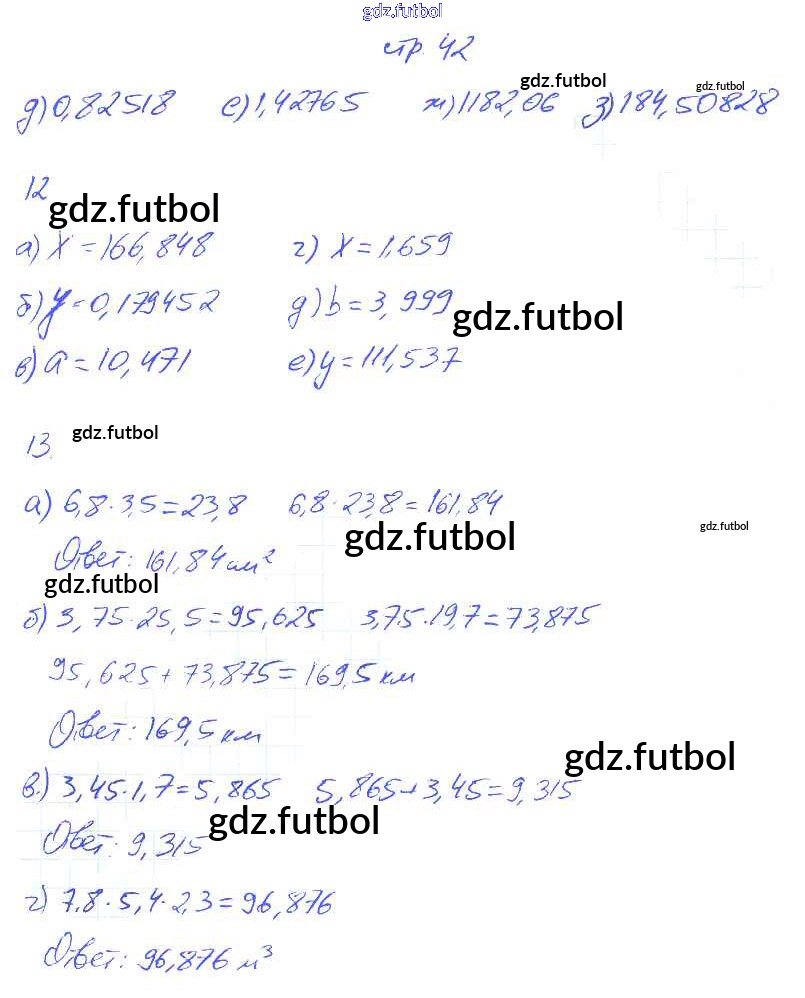 gdz.futbol
стр. 42
gdz.futbol gdz.futbol
д) 0,82518 е) 1,42765 ж) 1182,06 з) 184,50828
12
gdz.futbol
а) x = 166,848 г) x = 1,659
б) y = 0,179452 д) b = 3,999
gdz.futbol
в) a = 10,471 е) y = 111,537
13.
gdz.futbol
а) 6,8 · 3,5 = 23,8 6,8 · 23,8 = 161,84
gdz.futbol
gdz.futbol
Ответ: 161,84 см²
gdz.futbol
б) 3,75 · 25,5 = 95,625 3,75 · 19,7 = 73,875
95,625 + 73,875 = 169,5 км
Ответ: 169,5 км
gdz.futbol
в) 3,45 · 1,7 = 5,865 5,865 + 3,45 = 9,315
gdz.futbol
Ответ: 9,315
г) 7,8 · 5,4 · 2,3 = 96,876
Ответ: 96,876 м³